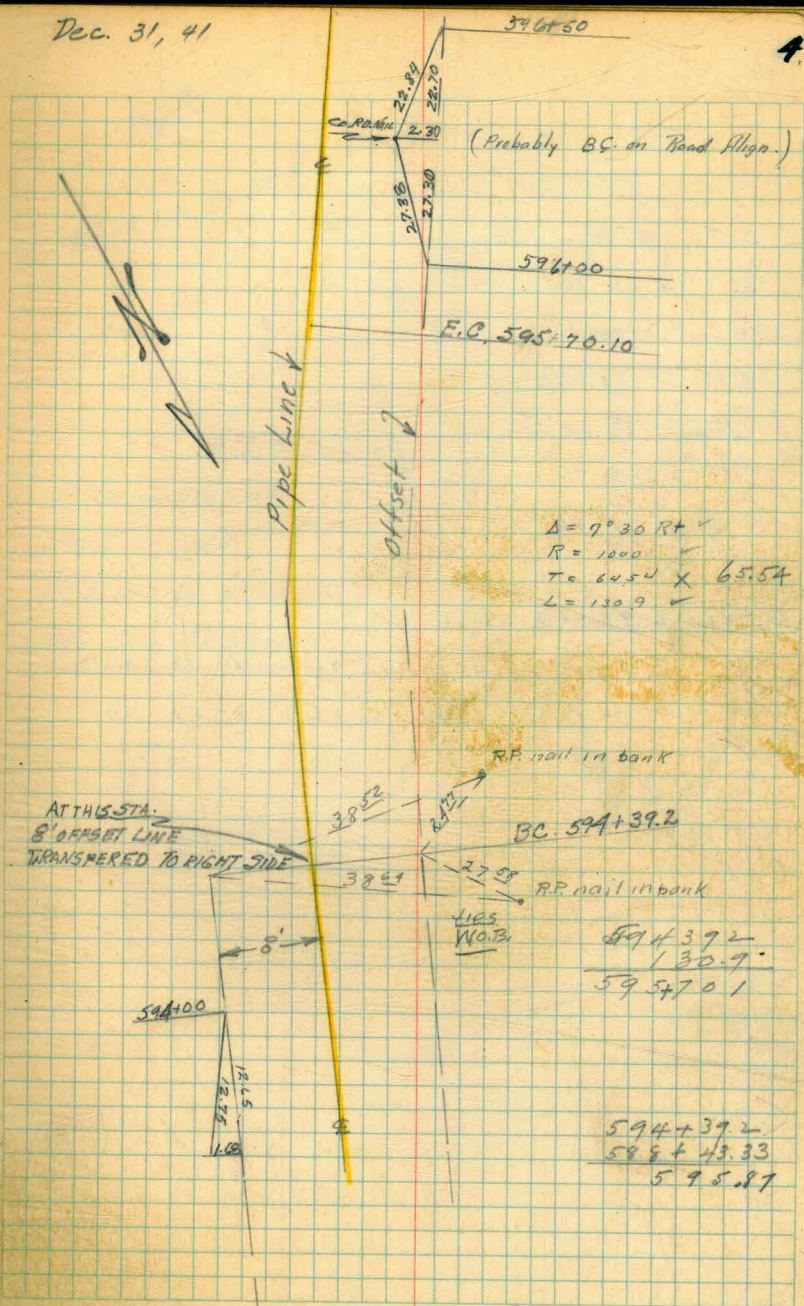 Dec. 31, 41
4.
596+50
22.84
22.70
CO. RD. NAIL
2.30
(Probably B.C. on Road Align.)
℄
27.38
27.30
596+00
E.C. 595+70.10
Pipe Line
Offset
Δ = 7° 30 Rt ✓
R = 1000 ✓
T = 64.54 X 65.54
L = 130.9 ✓
R.P. nail in bank
38 52
AT THIS STA.
8' OFFSET LINE
TRANSFERED TO RIGHT SIDE
B.C. 594+39.2
38 64
27 58
R.P. nail in bank
ties
W.O.B.
8'
594 39 2
130.9
595+70 1
594+00
12.65
12.75
1.68
℄
594+39.2
588+43.33
595.87